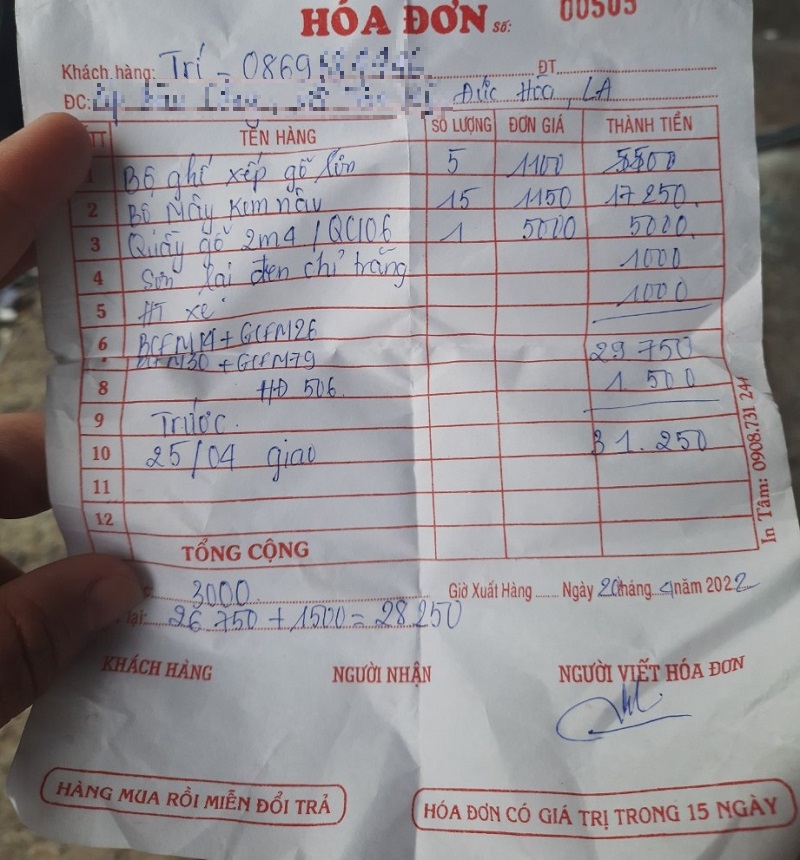 HÓA ĐƠN Số: 00505
Khách hàng: Trí - 0869 ĐT
ĐC: Đức Hòa, LA
TT TÊN HÀNG SỐ LƯỢNG ĐƠN GIÁ THÀNH TIỀN
1 Bộ ghế xếp gỗ lớn 5 1100 5500
2 Bộ mây kem nâu 15 1150 17 250.
3 Quầy gỗ 2m4 / QC106 1 5000 5000.
4 Sơn lại đen chỉ trắng 1000
5 HT xe 1000
6 BCFM14 + GCFM26 29 750
BCFM30 + GCFM79
8 HĐ 506. 1 500
9 Trước.
10 25/04 giao 31.250
11
12
TỔNG CỘNG
3000. Giờ Xuất Hàng Ngày 20 tháng 4 năm 2022
lại: 26 750 + 1500 = 28 250
KHÁCH HÀNG NGƯỜI NHẬN NGƯỜI VIẾT HÓA ĐƠN
HÀNG MUA RỒI MIỄN ĐỔI TRẢ
HÓA ĐƠN CÓ GIÁ TRỊ TRONG 15 NGÀY
In Tâm: 0908.731.244